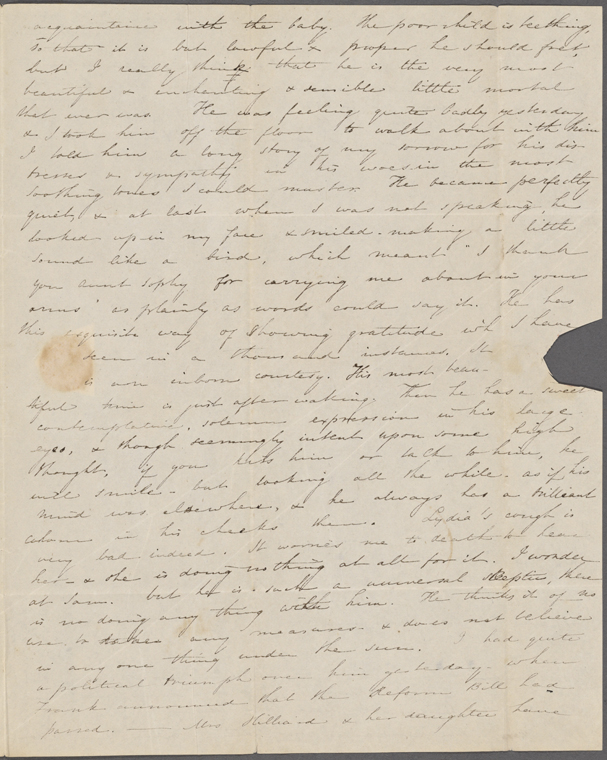 acquaintance with the baby. The poor child is teething,
so that it is but lawful & proper he should fret,
but I really think that he is the very most
beautiful & enchanting & sensible little mortal
that ever was. He was feeling quite badly yesterday
& I took him off the floor to walk about with him
I told him a long story of my sorrow for his dis-
tresses & sympathy in his woes in the most
soothing tones I could muster. He became perfectly
quiet, & at last when I was not speaking, he
looked up in my face & smiled - making a little
sound like a bird, which meant "I thank
you aunt Sophy for carrying me about in your
arms" as plainly as words could say it. He has
this exquisite way of showing gratitude wh I have
seen in a thousand instances. It
is an inborn courtesy. His most beau-
tiful time is just after waking. Then he has a sweet
contemplative, solemn expression in his large
eyes, & though seemingly intent upon some high
thought, if you kiss him or talk to him, he
will smile - but looking all the while as if his
mind was elsewhere, & he always has a brilliant
colour in his cheeks then. Lydia's cough is
very bad indeed. It worries me to death to hear
her - & she is doing nothing at all for it. I wonder
at Sam. but he is such a universal skeptic, there
is no doing any thing with him. He thinks it of no
use to take any measures & does not believe
in any one thing under the sun. I had quite
a political triumph over him yesterday - when
Frank announced that the Reform Bill had
passed. — Mrs Hilliard & her daughter have